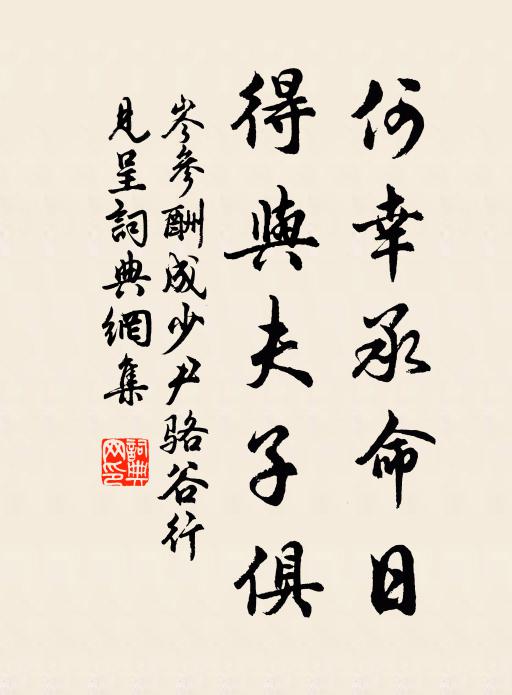 何幸承命日
得與夫子俱
岑參酬成少尹駱谷行
見呈詞典網集
詞典網印